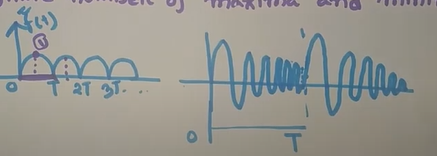 number of maxima and
f(t)
①
0 T 2T 3T...
0 T